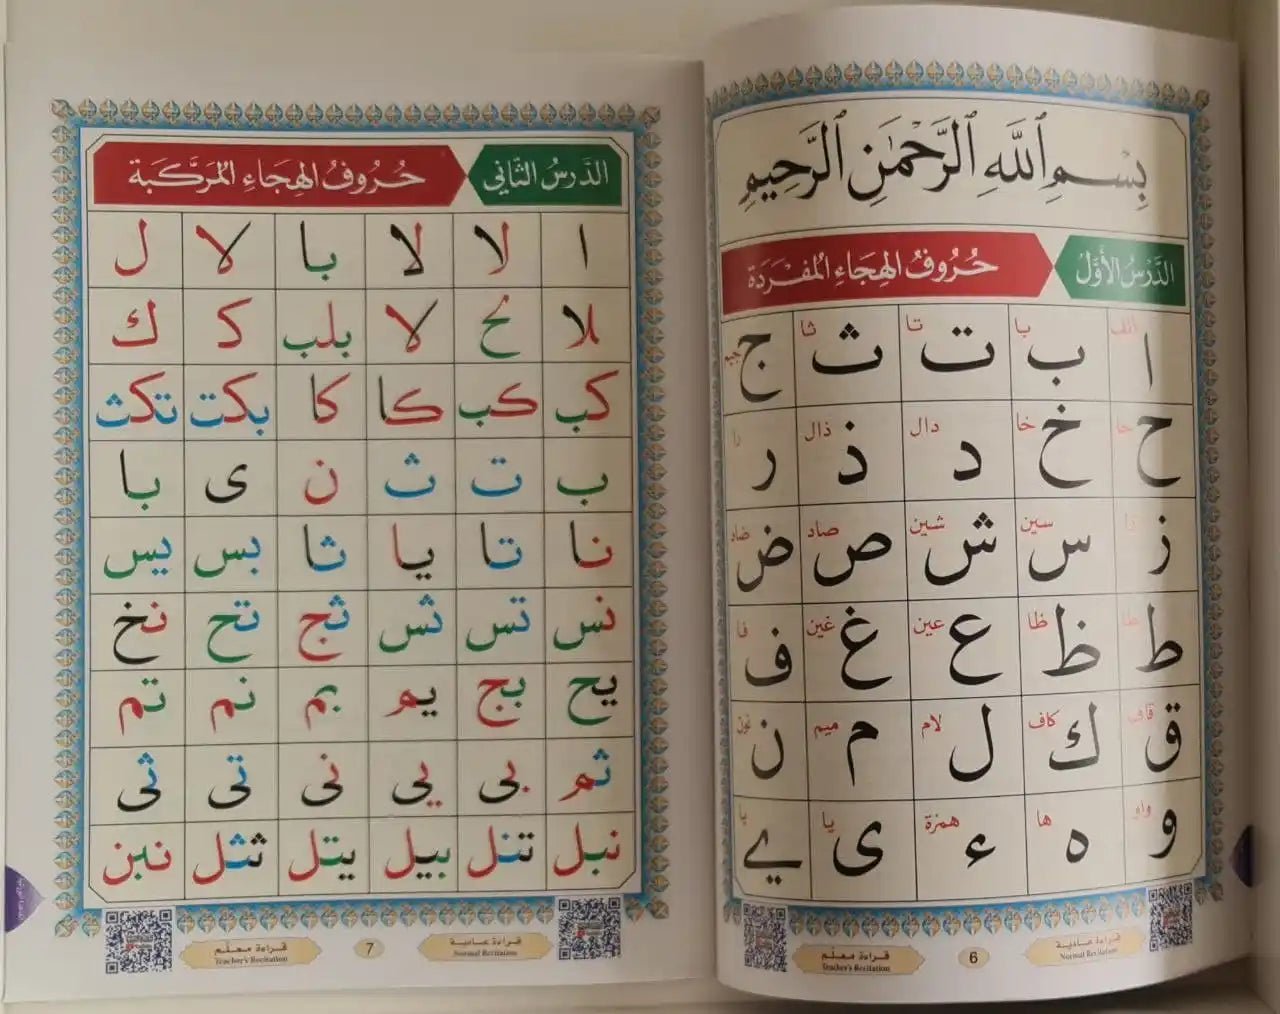 بِسْمِ ٱللَّهِ ٱلرَّحْمَٰنِ ٱلرَّحِيمِ
الدَّرْسُ الأَوَّلُ حُرُوفُ الهِجَاءِ المُفْرَدَة
ا ألف ب با ت تا ث ثا ج جيم
ح حا خ خا د دال ذ ذال ر را
ز زا س سين ش شين ص صاد ض ضاد
ط طا ظ ظا ع عين غ غين ف فا
ق قاف ك كاف ل لام م ميم ن نون
و واو ه ها ء همزة ى يا ے يا
قراءة عادية
Normal Recitation
6
قراءة معلم
Teacher's Recitation
الدَّرْسُ الثَّانِي حُرُوفُ الهِجَاءِ المُرَكَّبَة
ا لا لا با لا ل
بلا لح لا بلب ك ك
كب كب كا كا بكت تكث
ب ت ث ن ى با
نا تا يا ثا بس يس
نس تس ثس ثج تح نخ
يح بج يم بم نم تم
ثم بى يى نى تى ثى
نبل تنل بيل يتل ثثل نبن
قراءة عادية
Normal Recitation
7
قراءة معلم
Teacher's Recitation